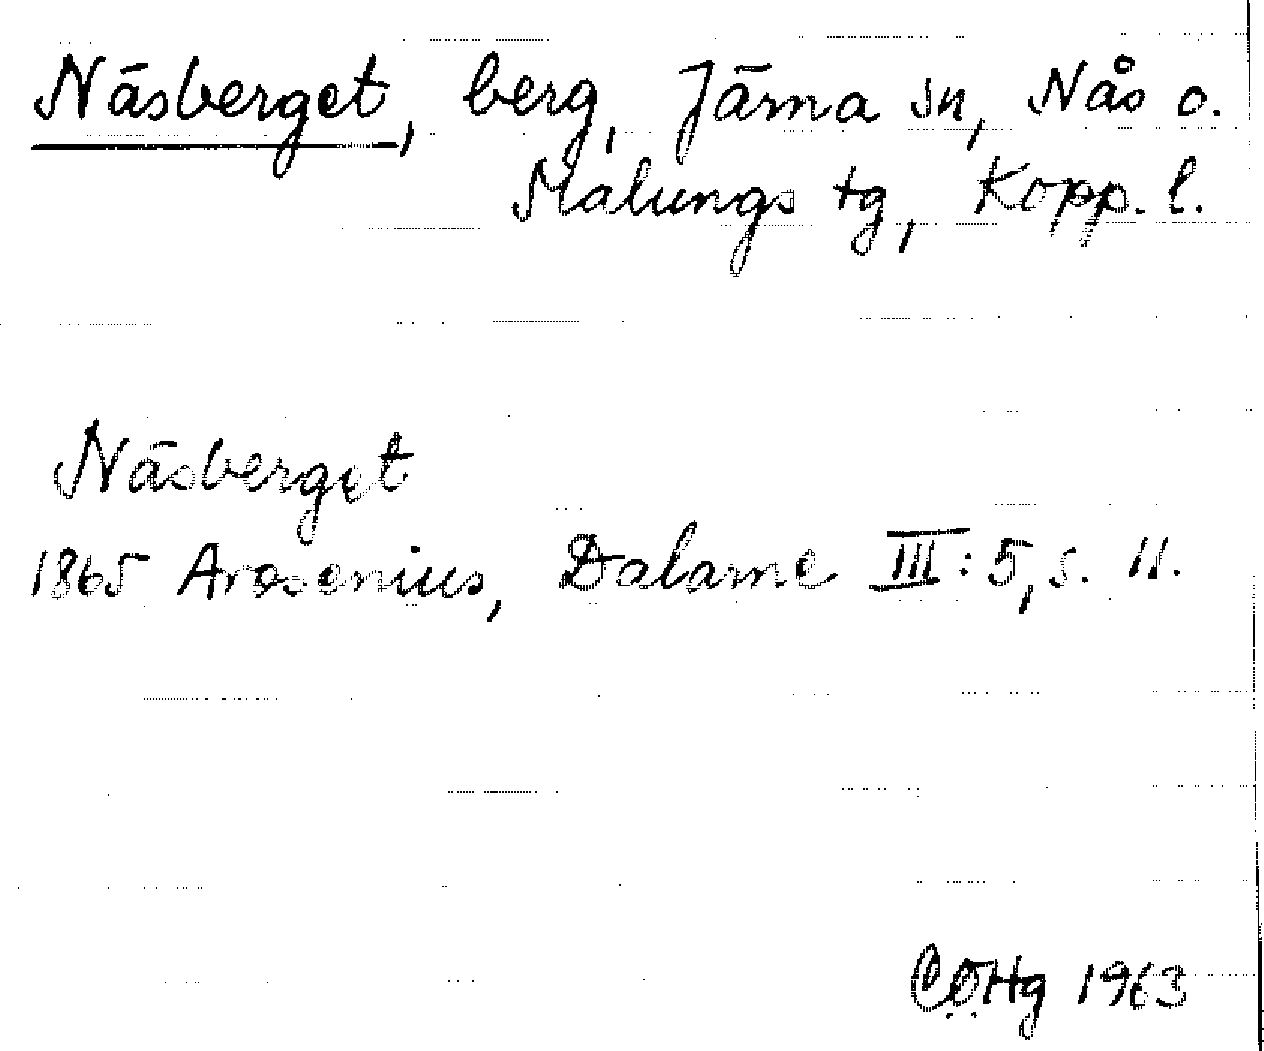 Näsberget, berg, Järna sn, Nås o.
Malungs tg, Kopp. l.
Näsberget
1865 Arosenius, Dalarne III: 5, s. 11.
CÖHg 1963